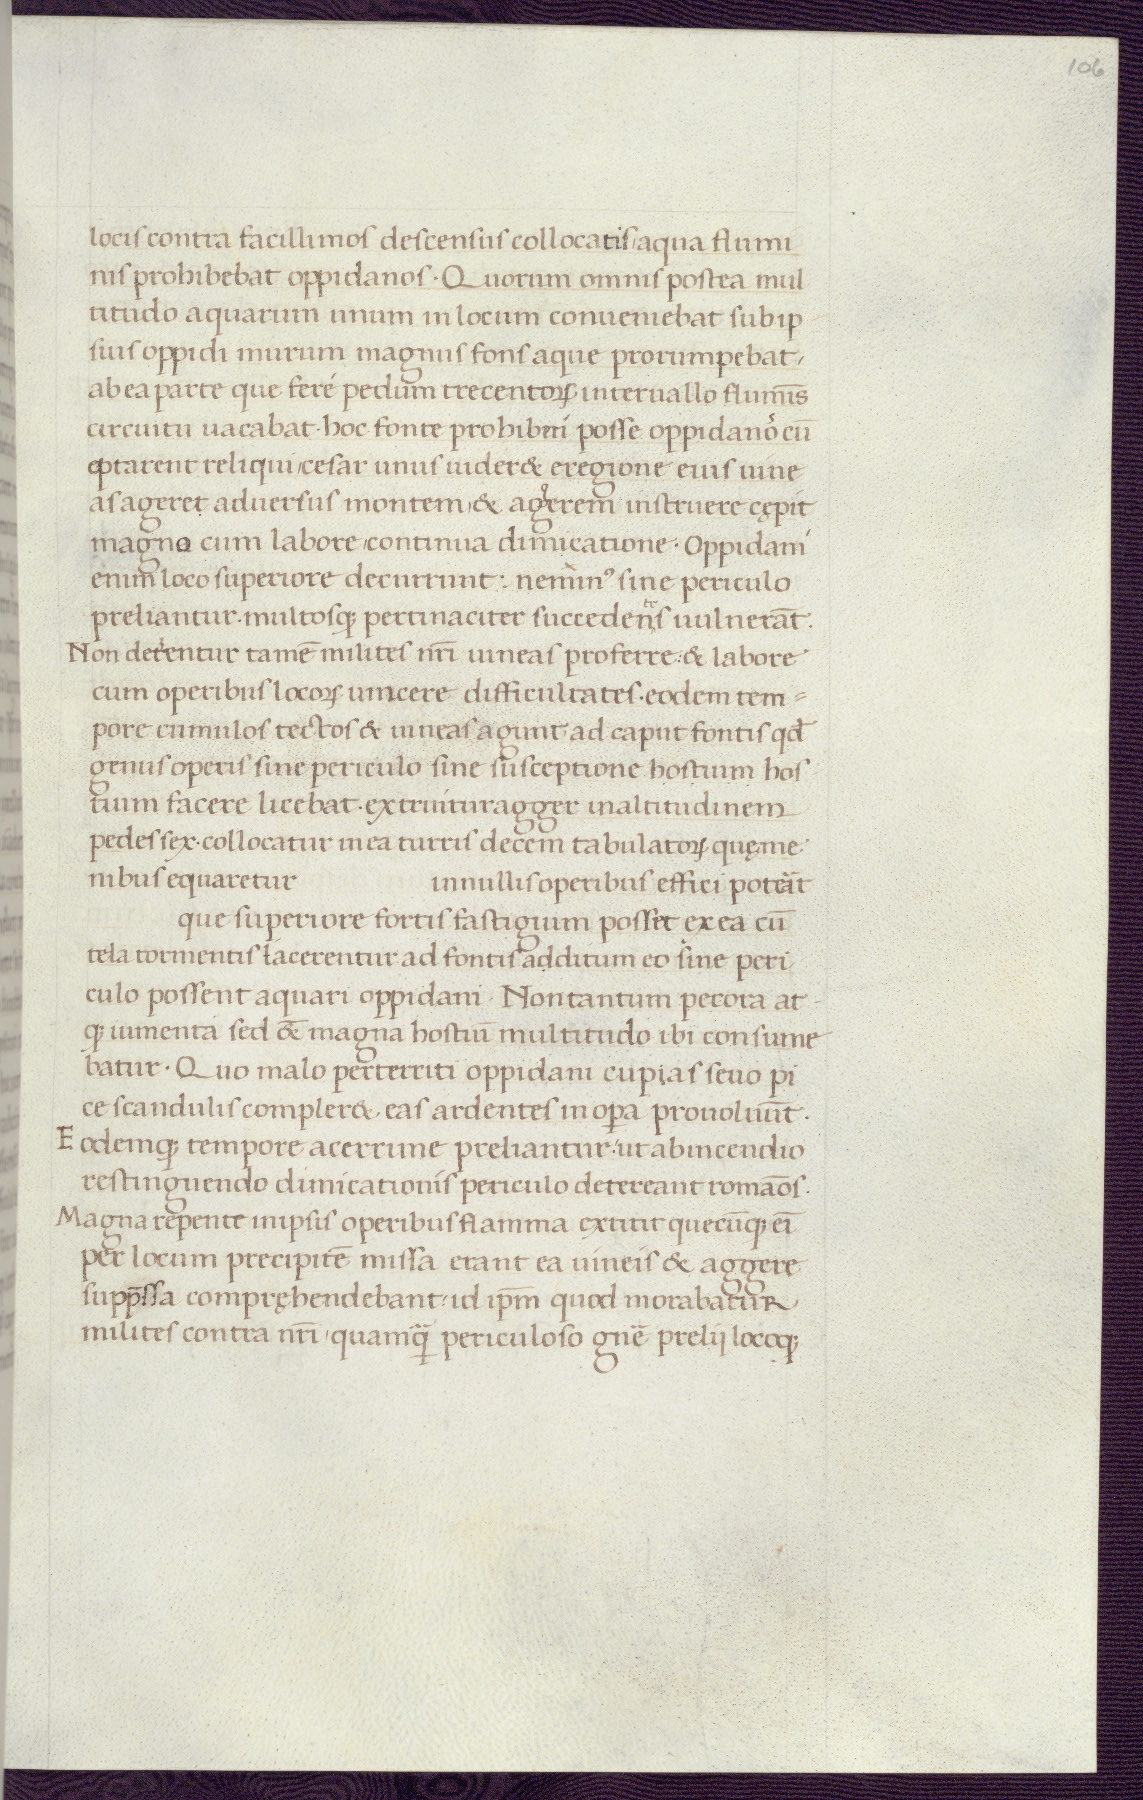 106
locis contra facillimos descensus collocatis, aqua flumi
nis prohibebat oppidanos · Quorum omnis postea mul
titudo aquarum unum in locum conveniebat sub ip
sius oppidi murum magnus fons aque prorumpebat,
ab ea parte que feré pedum trecentoꝝ intervallo flumīs
circuitu vacabat · hoc fonte prohiberi posse oppidanos cū
optarent reliqui, cesar unus vider& eregione eius vine
as ageret adversus montem, & aggerem instruere cępit
magno cum labore, continua dimicatione · Oppidani
enim loco superiore decurrunt: & eminꝰ sine periculo
preliantur · multosq; pertinaciter succedentes vulnerāt.
Non deterrentur tamē milites nr̄i vineas proferre · & labore
cum operibus locoꝝ vincere difficultates · eodem tem-
pore cumulos tectos & vineas agunt ad caput fontis qd̄
genus operis sine periculo sine susceptione hostium hos
tium facere licebat · extruitur agger in altitudinem
pedes sex · collocatur in ea turris decem tabulatoꝝ · quę me
nibus equaretur in nullis operibus effici poterāt
que superiore fortis fastigium posset ex ea cū
tela tormentis iacerentur ad fontis additum eo sine peri
culo possent aquari oppidani · Non tantum pecora at-
q; iumenta sed &̄ magna hostiū multitudo ibi consume
batur · Quo malo perterriti oppidani cupias sevo pi
ce scandulis compler&, eas ardentes in opera provolvūt ·
Eodemq; tempore acerrime preliantur · ut ab incendio
restinguendo dimicationis periculo detereant romāos ·
Magna repente in ipsis operibus flamma extitit quecūq; eī
per locum precipitē missa erant ea vineis & aggere
supp̄ssa compręhendebant, id ip̄m quod morabatur
milites contra nr̄i, quamq̄ periculoso gn̄e prelij locoq;